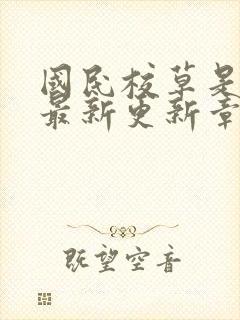 國民校草是
最新更新章
既望空音